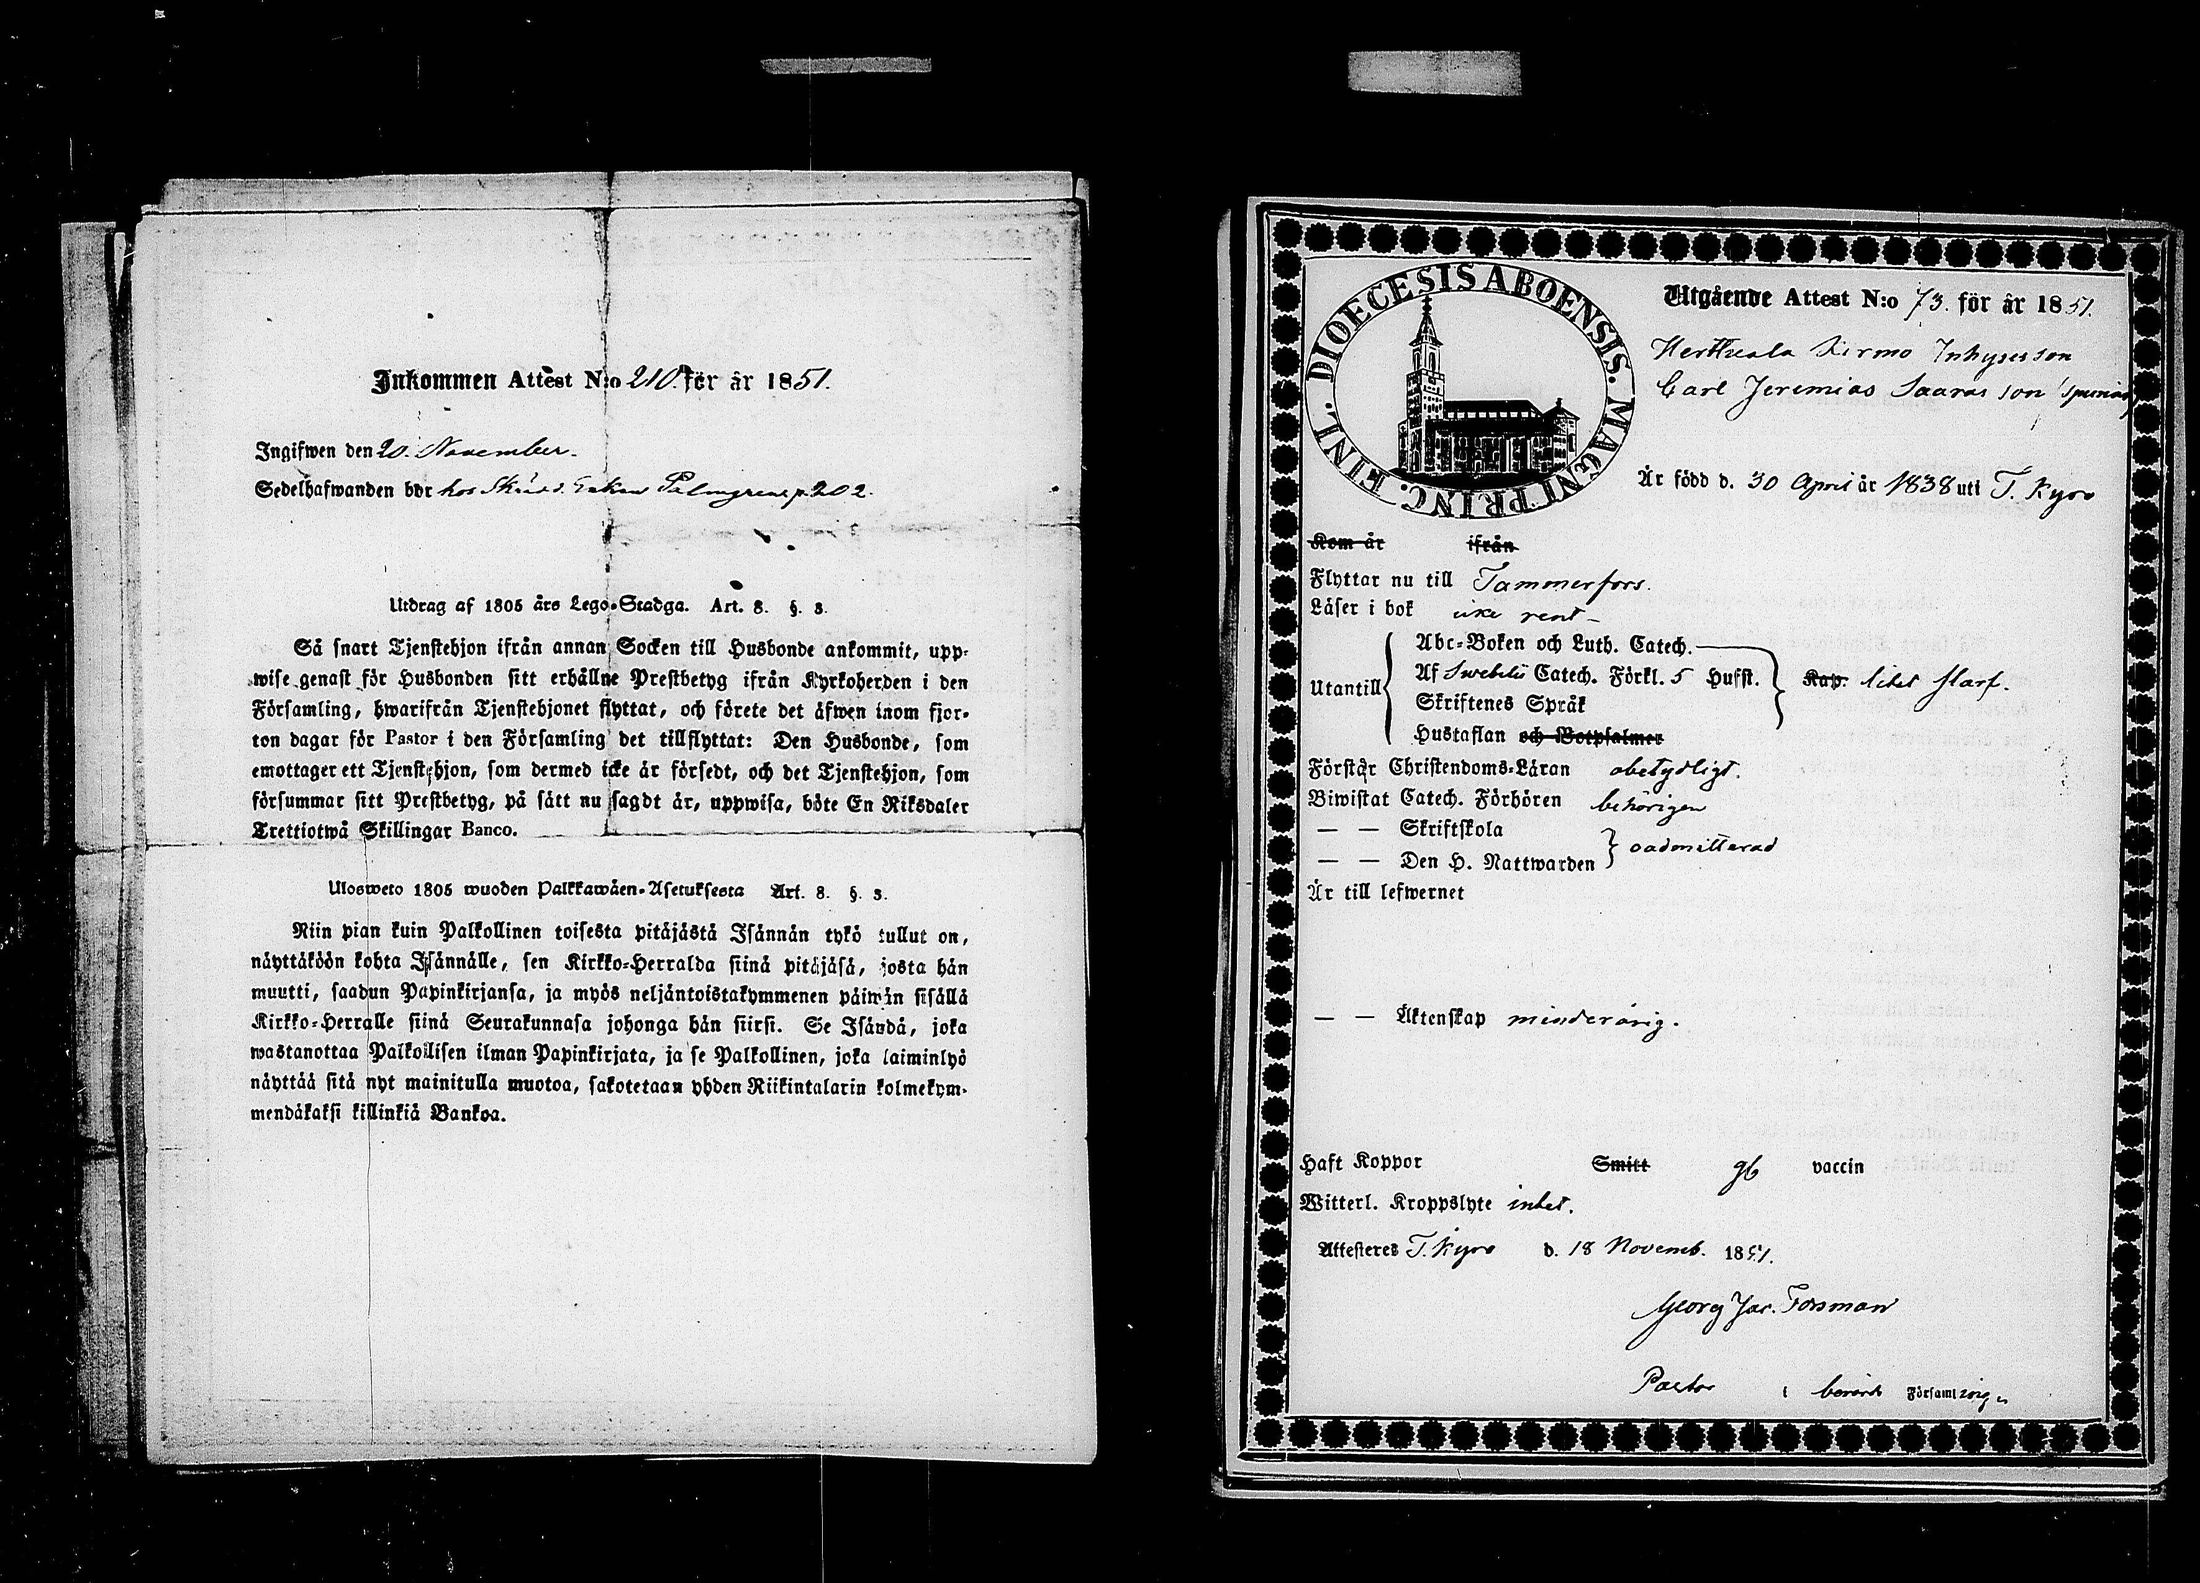 Inkommen Attest N:o 210. för år 1851.
Ingifwen den 20. November.
Sedelhafwanden bor hos Skrädd. Enkan Palmgren p. 202.
Utdrag af 1805 års Lego-Stadga. Art. 8. §. 3.
Så snart Tjenstehjon ifrån annan Socken till Husbonde ankommit, upp-
wise genast för Husbonden sitt erhållne Prestbetyg ifrån Kyrkoherden i den
Församling, hwarifrån Tjenstehjonet flyttat, och förete det äfwen inom fjor-
ton dagar för Pastor i den Församling det tillflyttat: Den Husbonde, som
emottager ett Tjenstehjon, som dermed icke är försedt, och det Tjenstehjon, som
försummar sitt Prestbetyg, på sätt nu sagdt är, uppwisa, böte En Riksdaler
Trettiotwå Skillingar Banco.
Ulosweto 1805 wuoden Palkkawäen-Asetuksesta Art. 8. §. 3.
Niin pian kuin Palkollinen toisesta pitäjästä Isännän tykö tullut on,
näyttäköön kohta Isännälle, sen Kirkko-Herralda siinä pitäjäsä, josta hän
muutti, saadun Papinkirjansa, ja myös neljäntoistakymmenen päiwän sisällä
Kirkko-Herralle siinä Seurakunnasa johonga hän siirsi. Se Isändä, joka
wastanottaa Palkollisen ilman Papinkirjata, ja se Palkollinen, joka laiminlyö
näyttää sitä nyt mainitulla muotoa, sakotetaan yhden Riikintalarin kolmekym-
mendäkaksi killinkiä Bankoa.
DIOECESIS ABOENSIS. MAGNI PRINC. FINL.
Utgående Attest N:o 73. för år 1851.
Herttuala Kirmo Inhyses son
Carl Jeremias Saaras son
Är född d. 30 April år 1838 uti T. Kyro
Kom år ifrån
Flyttar nu till Tammerfors.
Läser i bok icke rent
Abc-Boken och Luth. Catech.
Utantill Af Swebelii Catech. Förkl. 5 Hufst. Kap. litet slarf.
Skriftenes Språk
Hustaflan och Botpsalmer
Förstår Christendoms-Läran obetydligt.
Biwistat Catech. Förhören behörigen
— — Skriftskola
— — Den H. Nattwarden oadmitterad
Är till lefwernet
— — Äktenskap minderårig.
Haft Koppor Smitt gb vaccin
Witterl. Kroppslyte intet.
Attesteres T. Kyro d. 18 Novemb. 1851.
Georg Jac. Forsman
Pastor i berörd Församling